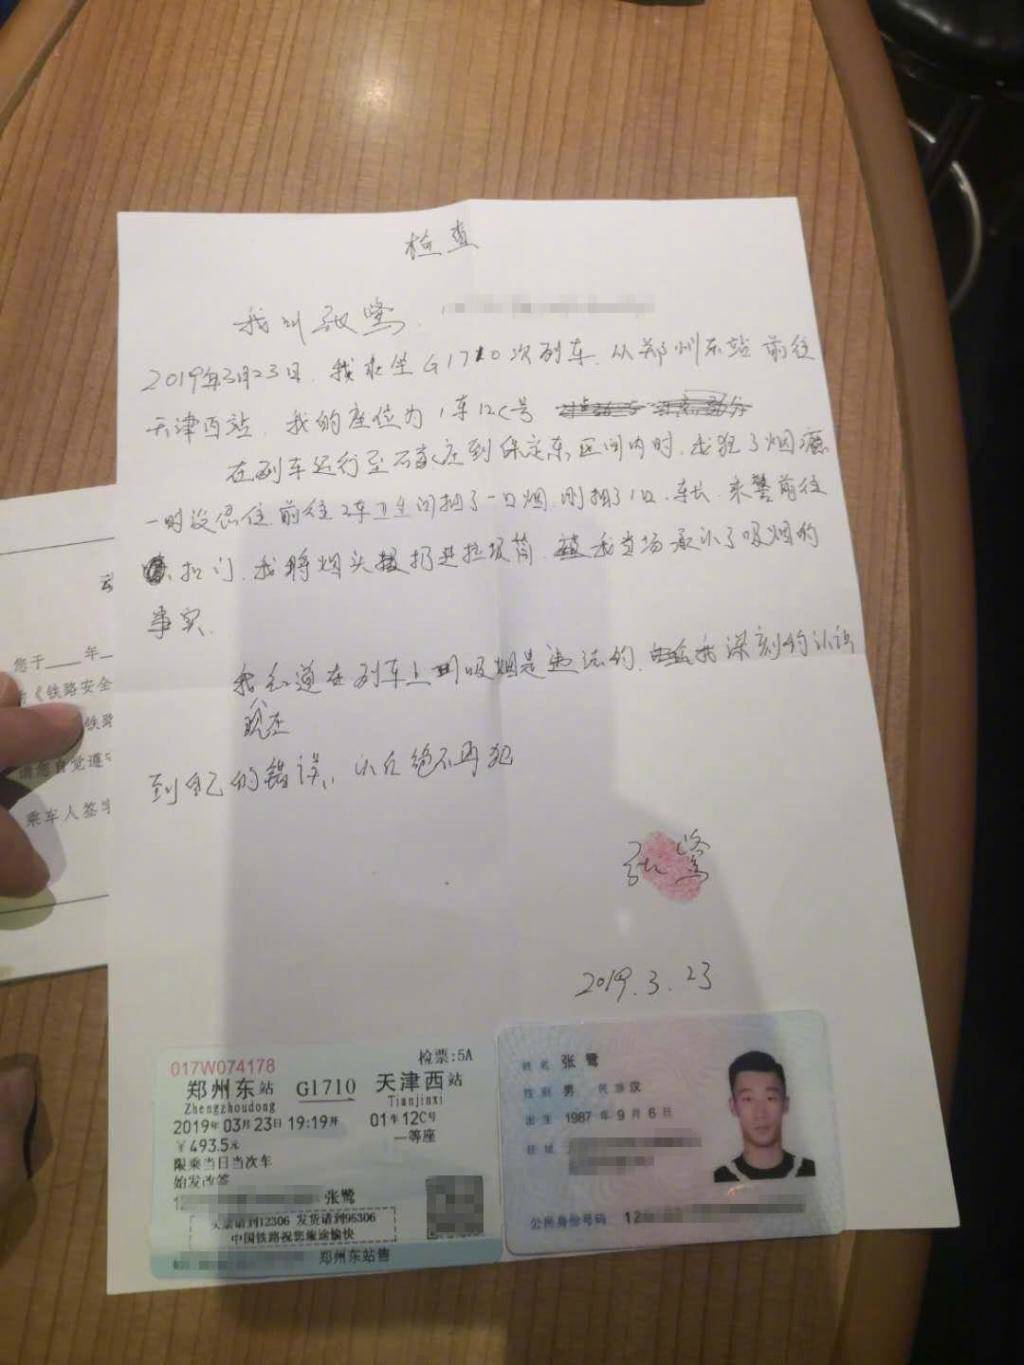 检查
我叫张鹭,
2019年3月23日,我乘坐G1710次列车,从郑州东站前往
天津西站,我的座位为1车12C号
在列车运行至石家庄到保定东区间内时,我犯了烟瘾
一时没忍住前往2车卫生间抽了一口烟,刚抽了1口,车长、乘警前往
扣门,我将烟头扔进垃圾筒,我当场承认了吸烟的
事实.
我知道在列车上吸烟是违法的,我深刻的认识
现在
到自己的错误,以后绝不再犯
张鹭
2019.3.23
您于____年
《铁路安全
乘车人签字
017W074178 检票:5A
郑州东站 G1710 天津西站
Zhengzhoudong Tianjinxi
2019年03月23日 19:19开 01车12C号
￥493.5元 一等座
限乘当日当次车
始发改签
张鹭
买票请到12306 发货请到95306
中国铁路祝您旅途愉快
郑州东站售
姓名 张鹭
性别 男 民族 汉
出生 1987年9月6日
住址
公民身份号码 12